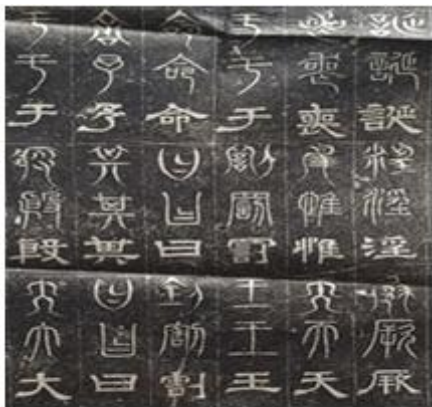 誕誕誕淫淫淫厥厥厥
喪喪喪惟惟惟天天天
于于于罰罰罰王王王
命命命曰曰曰割割割
予予予其其其曰曰曰
于于于殷殷殷大大大